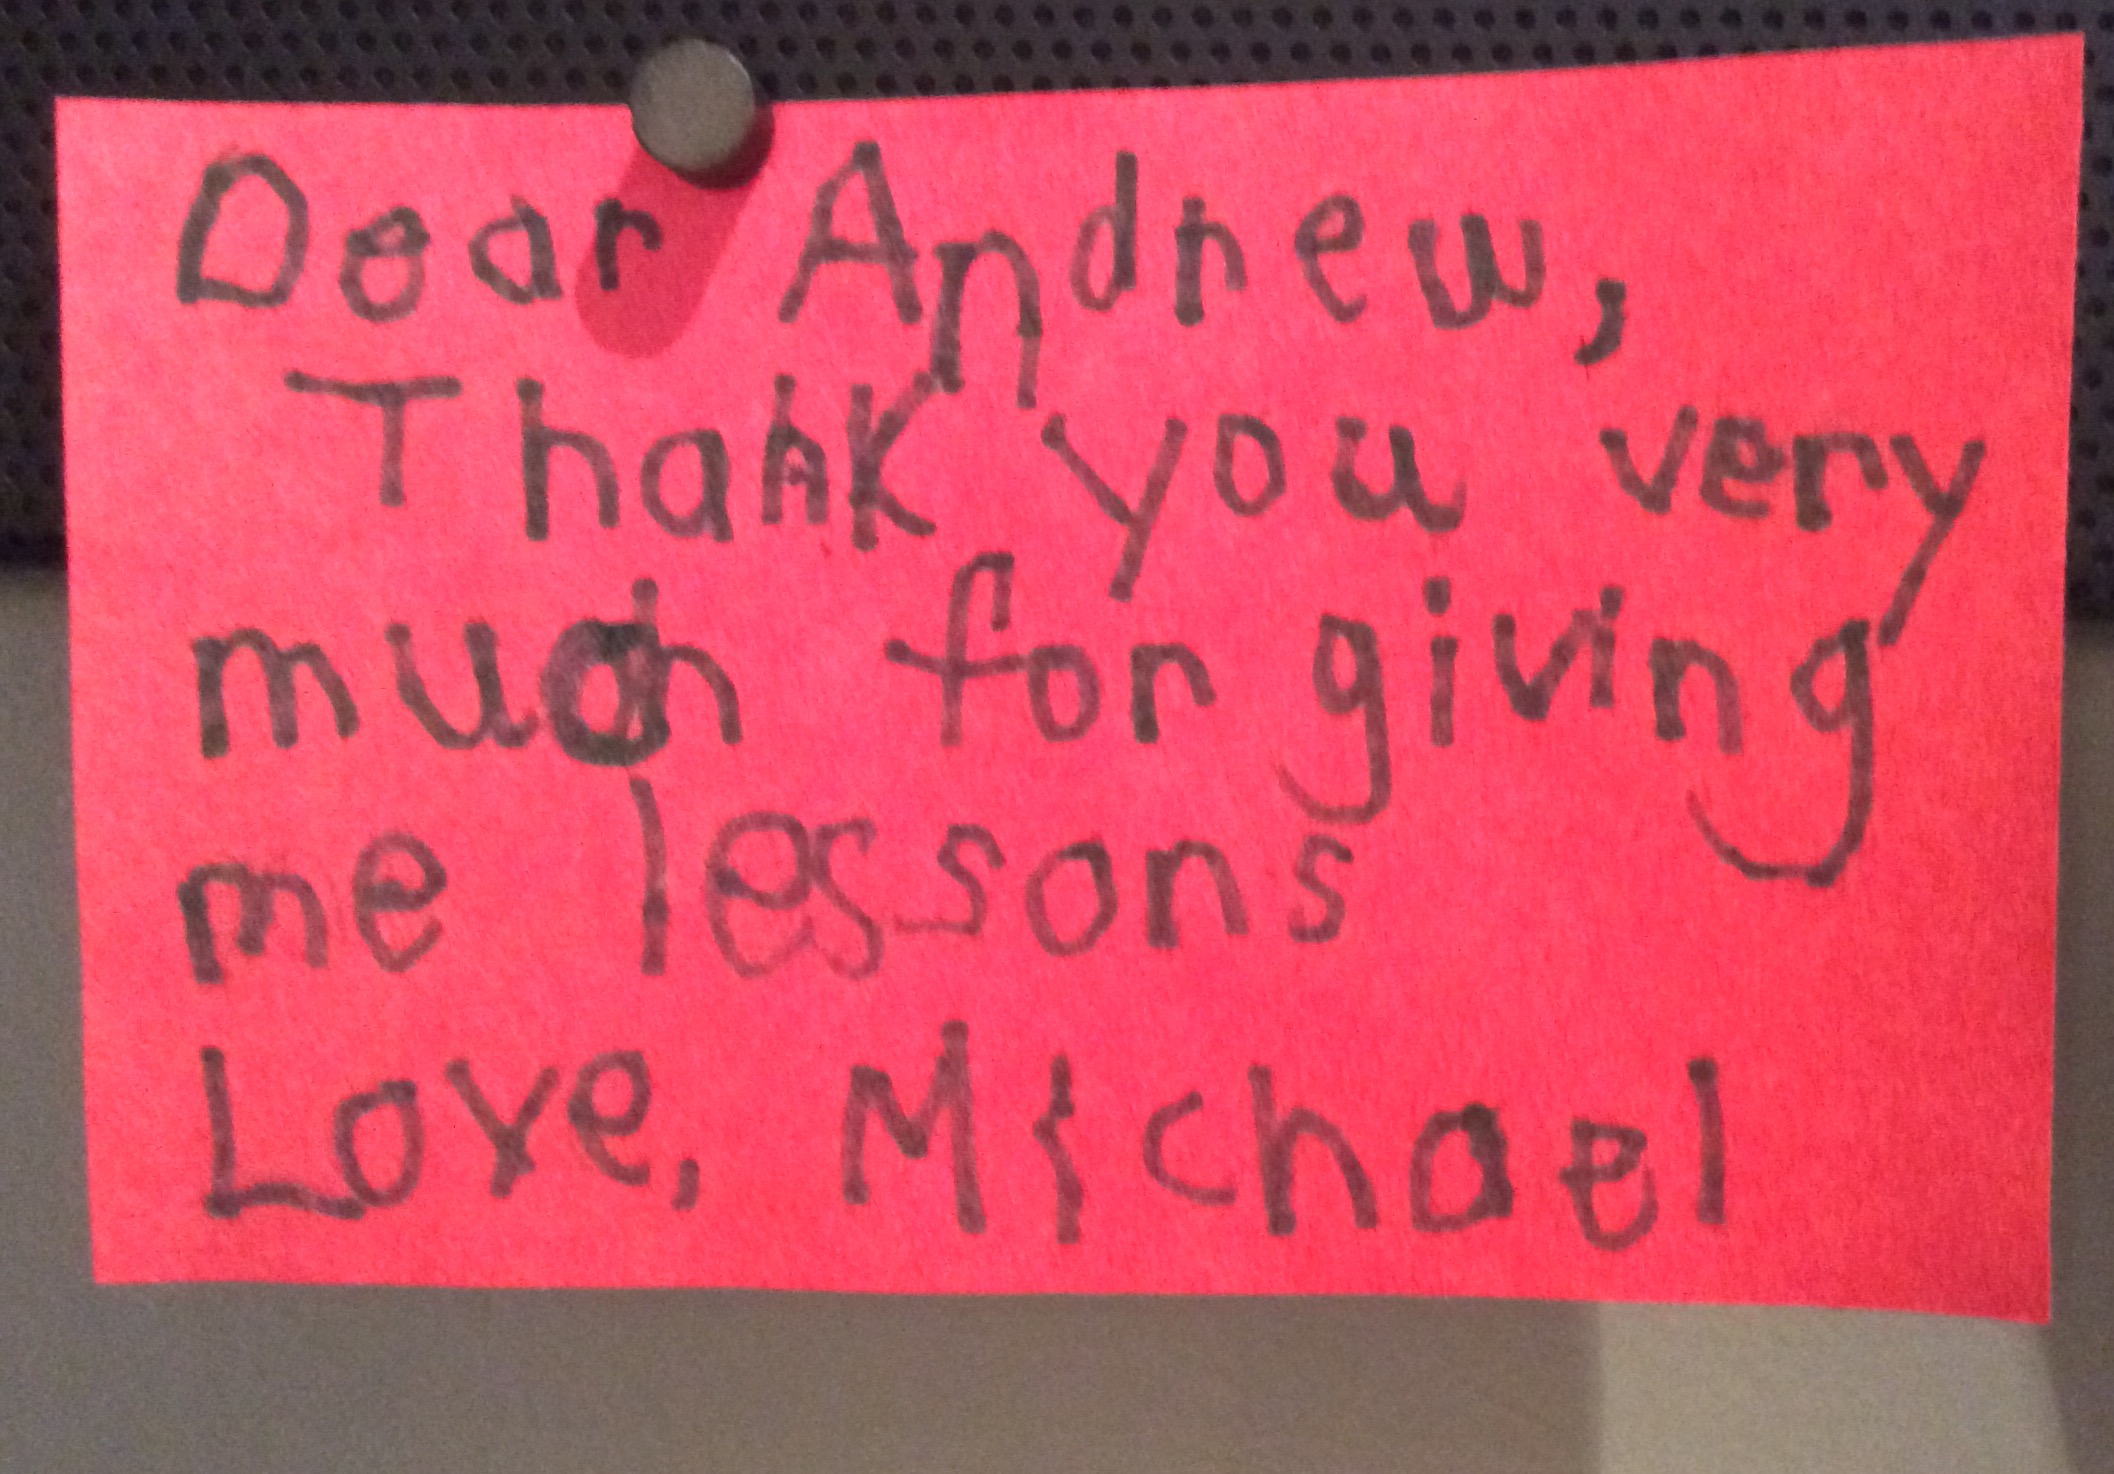 Dear Andrew,
Thank you very
much for giving
me lessons
Love, Michael